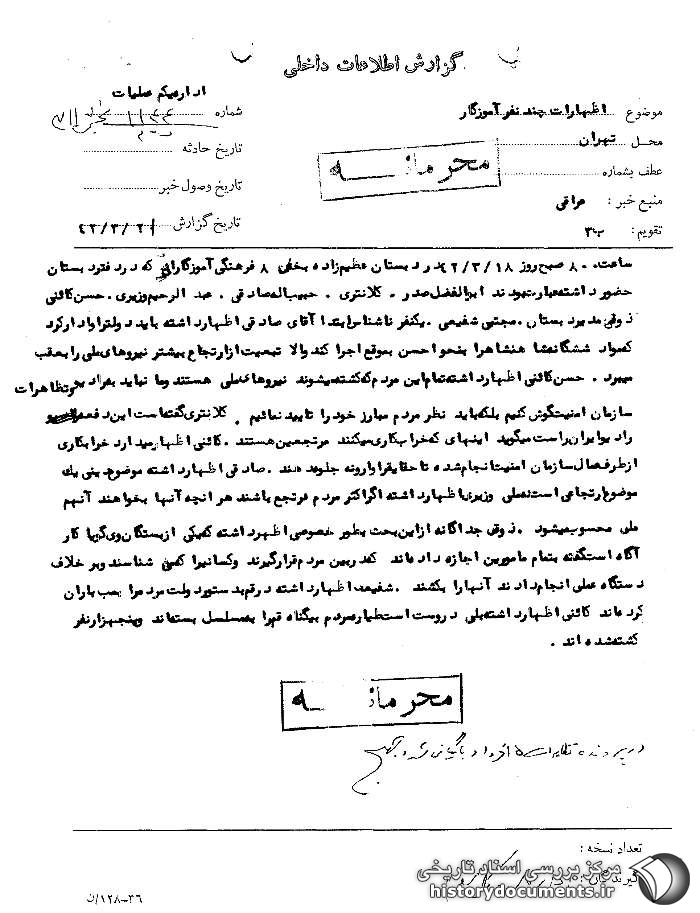 گزارش اطلاعات داخلی
موضوع اظهارات چند نفر آموزگار
محل تهران
عطف بشماره
منبع خبر : عراقی
تقویم : ب۳
اداره یکم عملیات
شماره
تاریخ حادثه
تاریخ وصول خبر
تاریخ گزارش ۴۲/۳/۲۱
محرمانه
ساعت ۸۰۰ صبح روز ۴۲/۳/۱۸ در دبستان عظیم زاده بخش ۸ فرهنگی آموزگارانی که در دفتر دبستان
حضور داشته عبارت بودند ابوالفضل صدر . کلانتری . حبیب اله صادقی . عبد الرحیم وزیری . حسن کائنی
ذوقی مدیر دبستان . مجتبی شفیعی . یکنفر ناشناس ابتدا آقای صادقی اظهار داشته باید دولت را وادار کرد
که مواد ششگانه شاهنشاه را بنحو احسن بموقع اجرا کند والا تبعیت از ارتجاع بیشتر نیروهای ملی را بعقب
میبرد . حسن کائنی اظهار داشته تمام این مردم که کشته میشوند نیروهای ملی هستند وما نباید تظاهرات
سازمان امنیت گوش کنیم بلکه باید نظر مردم مبارز خود را تایید نمائیم . کلانتری گفته است این دفعه
رادیو ایران راست میگوید اینهای که خرابکاری میکنند مرتجعین هستند . کائنی اظهار میدارد خرابکاری
از طرف عمال سازمان امنیت انجام شده تا حقایق را وارونه جلوه دهند . صادقی اظهار داشته موضوع یک
موضوع ارتجاعی است نه ملی وزیری اظهار داشته اگر اکثر مردم مرتجع باشند هر انچه آنها بخواهند آنهم
ملی محسوب میشود . ذوقی جداگانه از این بحث بطور خصوصی اظهر داشته که یکی از بستگان وی گویا کار
آگاه است گفته بتمام مامورین اجازه داده اند که در بین مردم قرار گیرند وکسانیرا که می شناسند وبر خلاف
دستگاه عملی انجام دادند آنها را بکشند . شفیعی اظهار داشته در قم بدستور دولت مردم را بمب باران
کرده اند کائنی اظهار داشته بلی درست است طیاره مردم بیگناه قم را به مسلسل بسته اند وپنجهزار نفر
کشته شده اند .
محرمانه
در پرونده تظاهرات افراد بایگانی شود
تعداد نسخه :
گیرندگان :
۳۶-۱۲۸/ن
مرکز بررسی اسناد تاریخی
historydocuments.ir